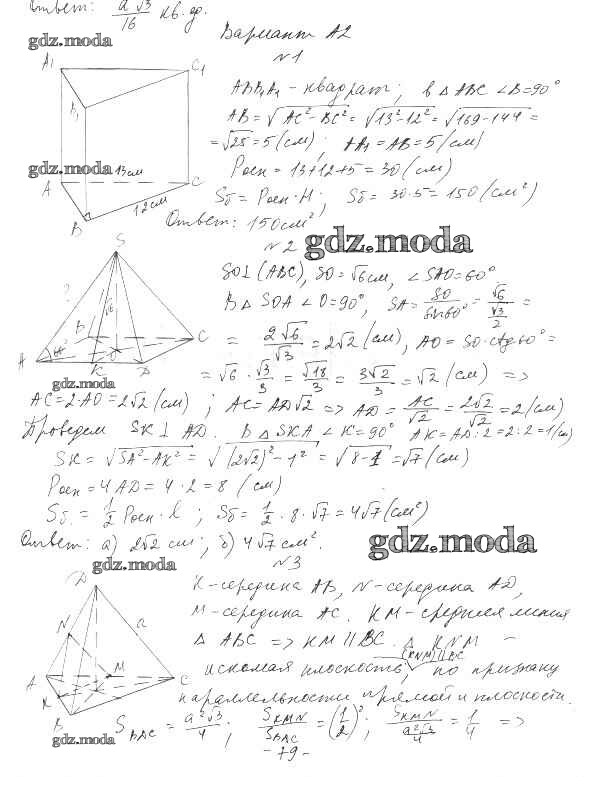 Ответ: a√3/16 кв. ед.
gdz.moda
Вариант А2
№1
A₁
C₁
B₁
ABB₁A₁ - квадрат; в △ABC ∠B=90°
AB = √(AC²-BC²) = √(13²-12²) = √(169-144) =
= √25 = 5 (см); AA₁ = AB = 5 (см)
gdz.moda
13см
Pосн = 13+12+5 = 30 (см)
A
C
12см
B
Sб = Pосн·H; Sб = 30·5 = 150 (см²)
Ответ: 150 см²
№2
gdz.moda
S
SO⊥(ABC), SO=√6см, ∠SAO=60°
?
√6
В △SOA ∠O=90°, SA = SO/sin60° = √6/(√3/2) =
B
C
A
60°
O
K
D
= 2√6/√3 = 2√2 (см), AO = SO·ctg60° =
= √6 · √3/3 = √18/3 = 3√2/3 = √2 (см) =>
gdz.moda
AC=2·AO=2√2 (см); AC=AD√2 => AD = AC/√2 = 2√2/√2 = 2 (см)
Проведем SK⊥AD. В △SKA ∠K=90° AK=AD:2=2:2=1(см)
SK = √(SA²-AK²) = √((2√2)²-1²) = √(8-1) = √7 (см)
Pосн = 4AD = 4·2 = 8 (см)
Sб. = 1/2 Pосн·l; Sб = 1/2·8·√7 = 4√7 (см²)
Ответ: а) 2√2 см; б) 4√7 см².
gdz.moda
gdz.moda
№3
D
K-середина AB, N-середина AD,
N
a
M-середина AC. KM-средняя линия
△ABC => KM∥BC. △KNM -
(KNM)∥BC
A
M
C
искомая плоскость, по признаку
K
параллельности прямой и плоскости.
B
S BAC = a²√3/4; S KMN/S BAC = (1/2)²; S KMN/(a²√3/4) = 1/4 =>
gdz.moda
-79-